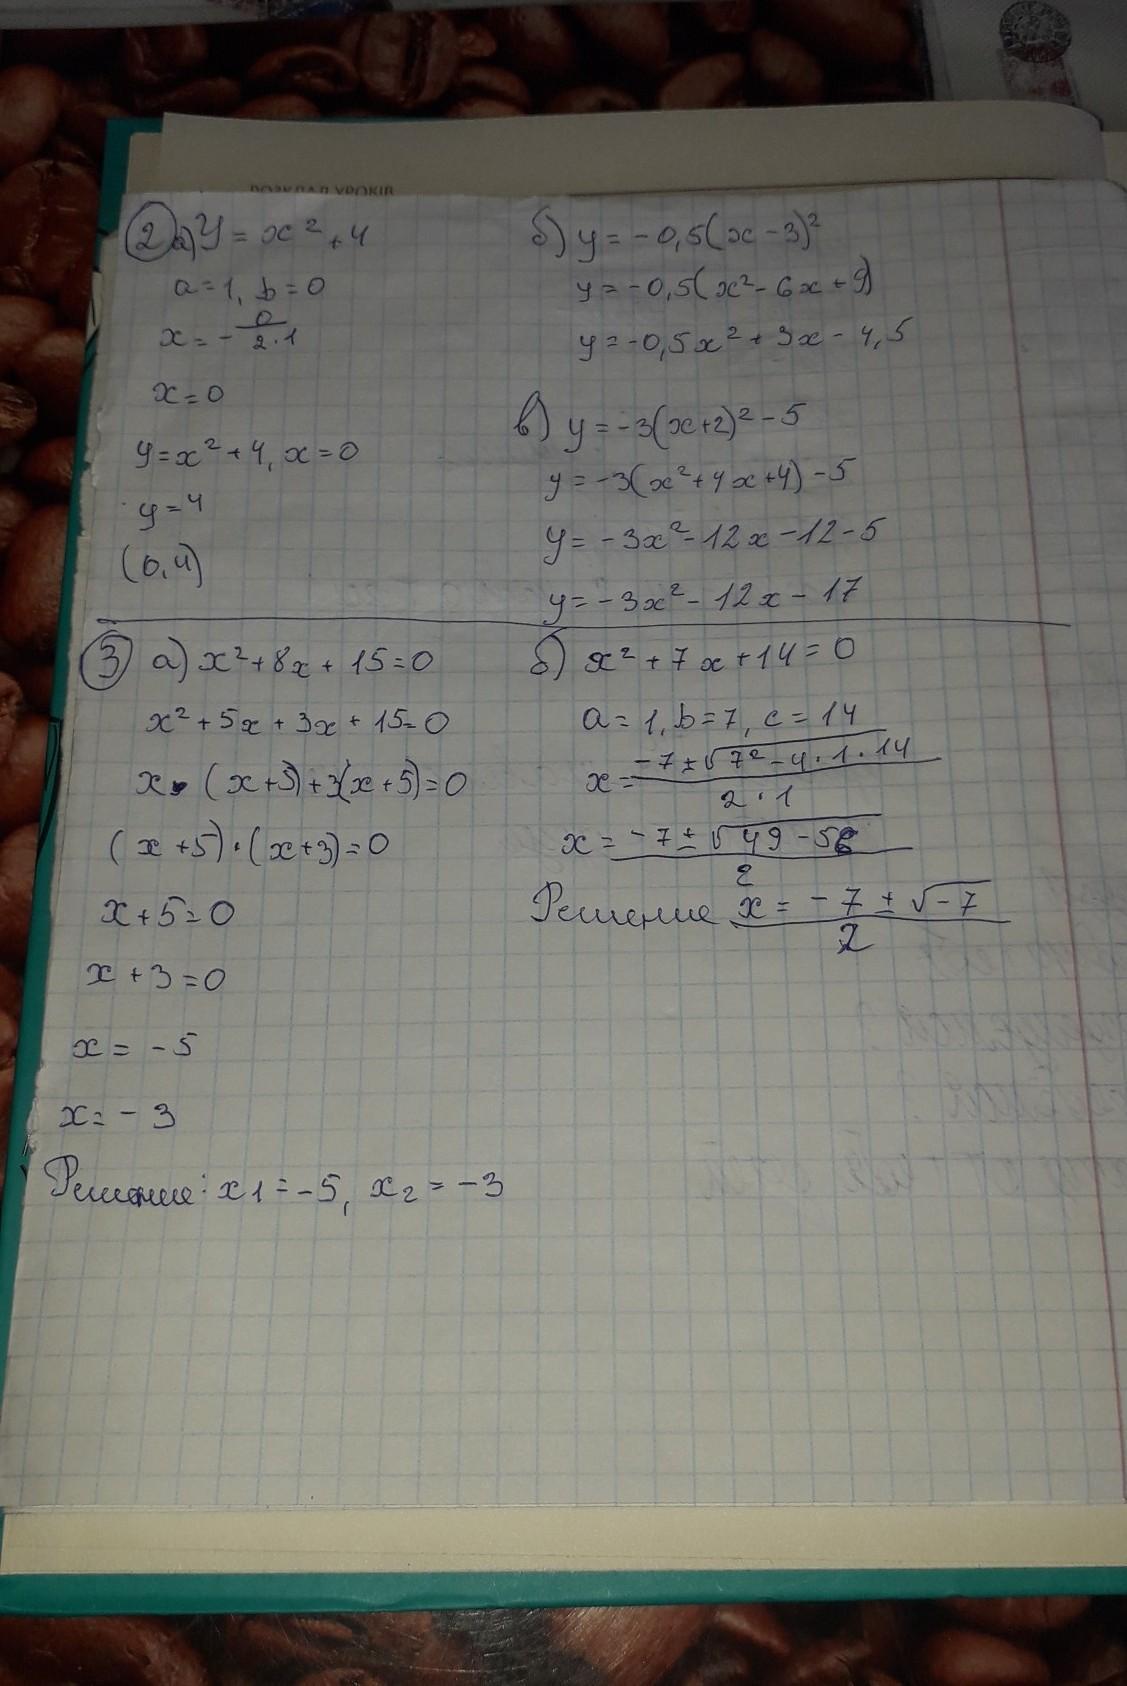 РОЗКЛАД УРОКІВ
2 а) y = x² + 4
a = 1, b = 0
x = - 0/(2·1)
x = 0
y = x² + 4, x = 0
y = 4
(0,4)
б) y = -0,5(x - 3)²
y = -0,5(x² - 6x + 9)
y = -0,5x² + 3x - 4,5
в) y = -3(x+2)² - 5
y = -3(x² + 4x + 4) - 5
y = -3x² - 12x - 12 - 5
y = -3x² - 12x - 17
3 а) x² + 8x + 15 = 0
x² + 5x + 3x + 15 = 0
x · (x+5) + 3(x+5) = 0
(x+5) · (x+3) = 0
x + 5 = 0
x + 3 = 0
x = -5
x = -3
Решение: x1 = -5, x2 = -3
б) x² + 7x + 14 = 0
a = 1, b = 7, c = 14
x = (-7 ± √(7² - 4·1·14))/(2·1)
x = (-7 ± √(49 - 56))/2
Решение x = (-7 ± √-7)/2